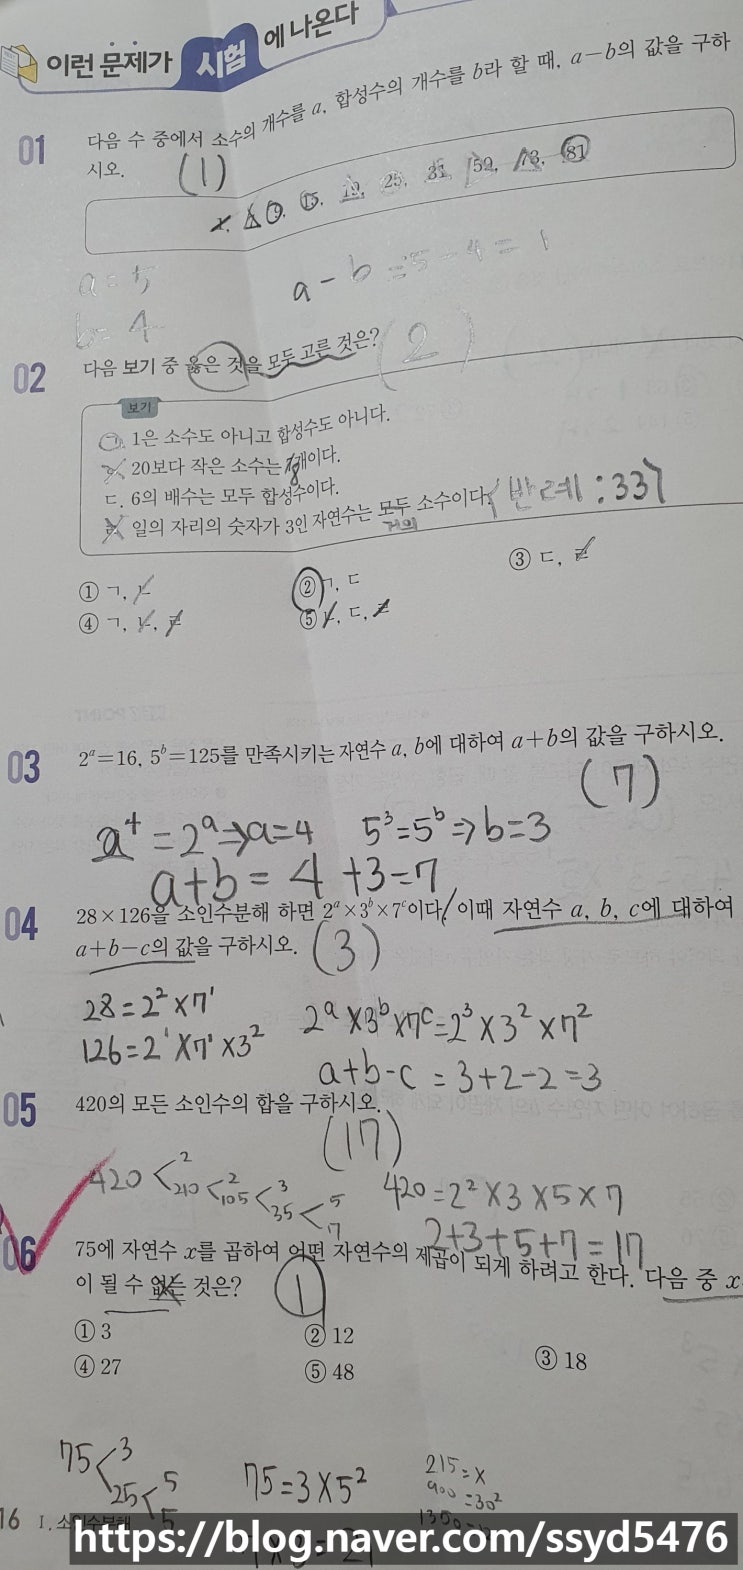 이런 문제가 시험에 나온다
01 다음 수 중에서 소수의 개수를 a, 합성수의 개수를 b라 할 때, a-b의 값을 구하
시오. (1)
9, 15, 19, 25, 31, 59, 73, 81
a=5
a-b=5-4=1
b=4
02 다음 보기 중 옳은 것을 모두 고른 것은? (2)
보기
ㄱ. 1은 소수도 아니고 합성수도 아니다.
ㄴ. 20보다 작은 소수는 7개이다.
8
ㄷ. 6의 배수는 모두 합성수이다.
ㄹ. 일의 자리의 숫자가 3인 자연수는 모두 소수이다. (반례:33)
거의
① ㄱ, ㄴ ② ㄱ, ㄷ ③ ㄷ, ㄹ
④ ㄱ, ㄴ, ㄹ ⑤ ㄴ, ㄷ, ㄹ
03 2ᵃ=16, 5ᵇ=125를 만족시키는 자연수 a, b에 대하여 a+b의 값을 구하시오.
(7)
=2ᵃ⇒a=4 5³=5ᵇ⇒b=3
a+b=4+3=7
04 28×126을 소인수분해 하면 2ᵃ×3ᵇ×7ᶜ이다. 이때 자연수 a, b, c에 대하여
a+b-c의 값을 구하시오. (3)
28=2²×7¹
2ᵃ×3ᵇ×7ᶜ=2³×3²×7²
126=2¹×7¹×3²
a+b-c=3+2-2=3
05 420의 모든 소인수의 합을 구하시오.
(17)
420<2 210<2 105<3 35<5 7
420=2²×3×5×7
2+3+5+7=17
06 75에 자연수 x를 곱하여 어떤 자연수의 제곱이 되게 하려고 한다. 다음 중 x
이 될 수 없는 것은? ①
① 3 ② 12 ③ 18
④ 27 ⑤ 48
75<3 25<5 5
75=3×5²
215=x
900=30²
16 I. 소인수분해
https://blog.naver.com/ssyd5476